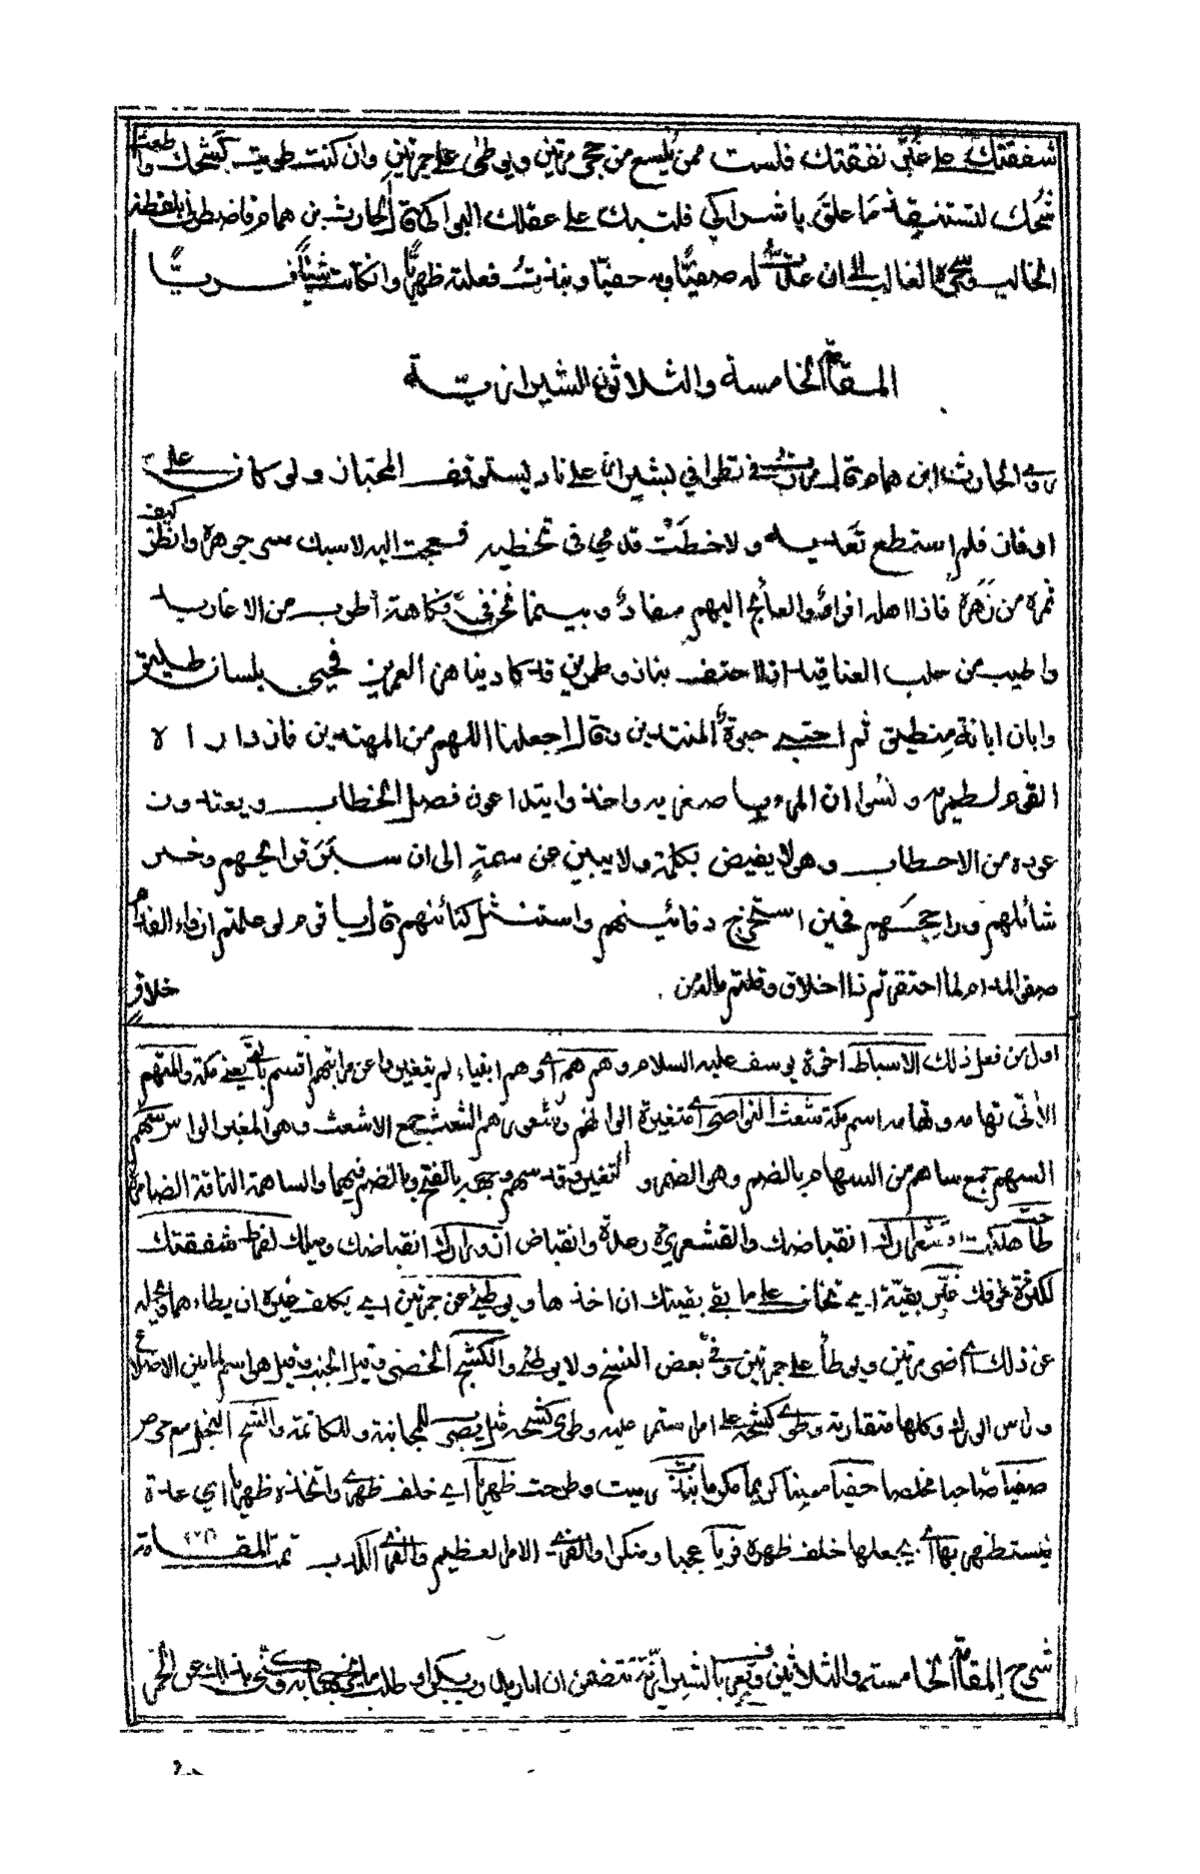 شفقتك على غبّر نفقتك فلست ممن يلسع من جحر مرتين ويوطئ على جمرتين وان كنت طويت كشحك واطعت
شحك لتستنقذ ما علق باشراكي فلتبك على عقلك البواكي قال الحارث بن همام فاضطرني بلفظه
الخالب وسحره الغالب الى ان عدت له صفيا وبه حفيا ونبذت فعلته ظهريا وان كانت شيئا فريا
المقامة الخامسة والثلاثون الشيرازية
روى الحارث ابن همام قال مررت في تطوافي بشيراز على ناد يستوقف المجتاز ولو كان على
اوفاز فلم استطع تعديه ولا خطت قدمي في تخطيه فعجت اليه لاسبك سر جوهره وانظر كيف
ثمره من زهره فاذا اهله افراد والعائج اليهم مفاد وبينما نحن في فكاهة اطرب من الاغاريد
واطيب من حلب العناقيد اذ احتف بنا ذو طمرين قد كاد يناهز العمرين فحيى بلسان طليق
وابان ابانة منطيق ثم احتبى حبوة المنتدين وقال اجعلنا اللهم من المهتدين فازدراه
القوم لطمريه ونسوا ان المرء باصغريه واخذوا يتداعون فصل الخطاب ويعتدون
عوده من الاحطاب وهو لا يفيض بكلمة ولا يبين عن سمة الى ان سبر قرائحهم وخبر
شائلهم وراجحهم فحين استخرج دفائنهم واستنثل كنائنهم قال يا قوم لو علمتم ان وراء الفدام
صفو المدام لما احتقرتم ذا اخلاق وقلتم ماله من
خلاق
اول من فعل ذلك الاسباط اخوة يوسف عليه السلام وهم هم اي وهم انبياء لم يتغيروا عن مراتبهم اقسم بالله يعني مكة والمتهم
الآتي تهامة وتهامة اسم مكة شعث النواصي اي متغيرة الوانهم وشعورهم الشعث جمع الاشعث وهو المغبر الراس سهم
السهم جمع ساهم من السهام بالضم وهو الضمر والتغير وقد سهم وجهه بالفتح وبالضم فيهما والساهمة الناقة الضامرة
انقباضك والقشعريرة رعدة وانقباض ازورارك انقباضك وميلك لفرط شفقتك
لكثرة خوفك غبر بقية اي تخاف على ما بقي بقيتك ان اخذها ويوطئ عن جمرتين اي يكلف غيره ان يطاءهما
عن ذلك اي اضر مرتين ويوطأ على جمرتين وفي بعض النسخ ولا يوطئ والكشح الخصر وقيل الجنب وقيل هو اسم لما بين الاضلاع
وراس الورك وكلها متقاربة وطوى كشحه على امر استمر عليه وطوى كشحه للمجانبة وللكاتمة والشح البخل مع حرص
صفيا صاحبا مخلصا حفيا معينا كريما مكرما نبذت رميت وطرحت ظهريا اي خلف ظهري واتخذه ظهريا اي عدة
يستظهر بها اي يجعلها خلف ظهره فريا عجبا ومنكرا والفري الامر العظيم والفري الكذب تمت المقامة
شرح المقامة الخامسة والثلاثين وتعرف بالشيرازية تتضمن ان ابا زيد